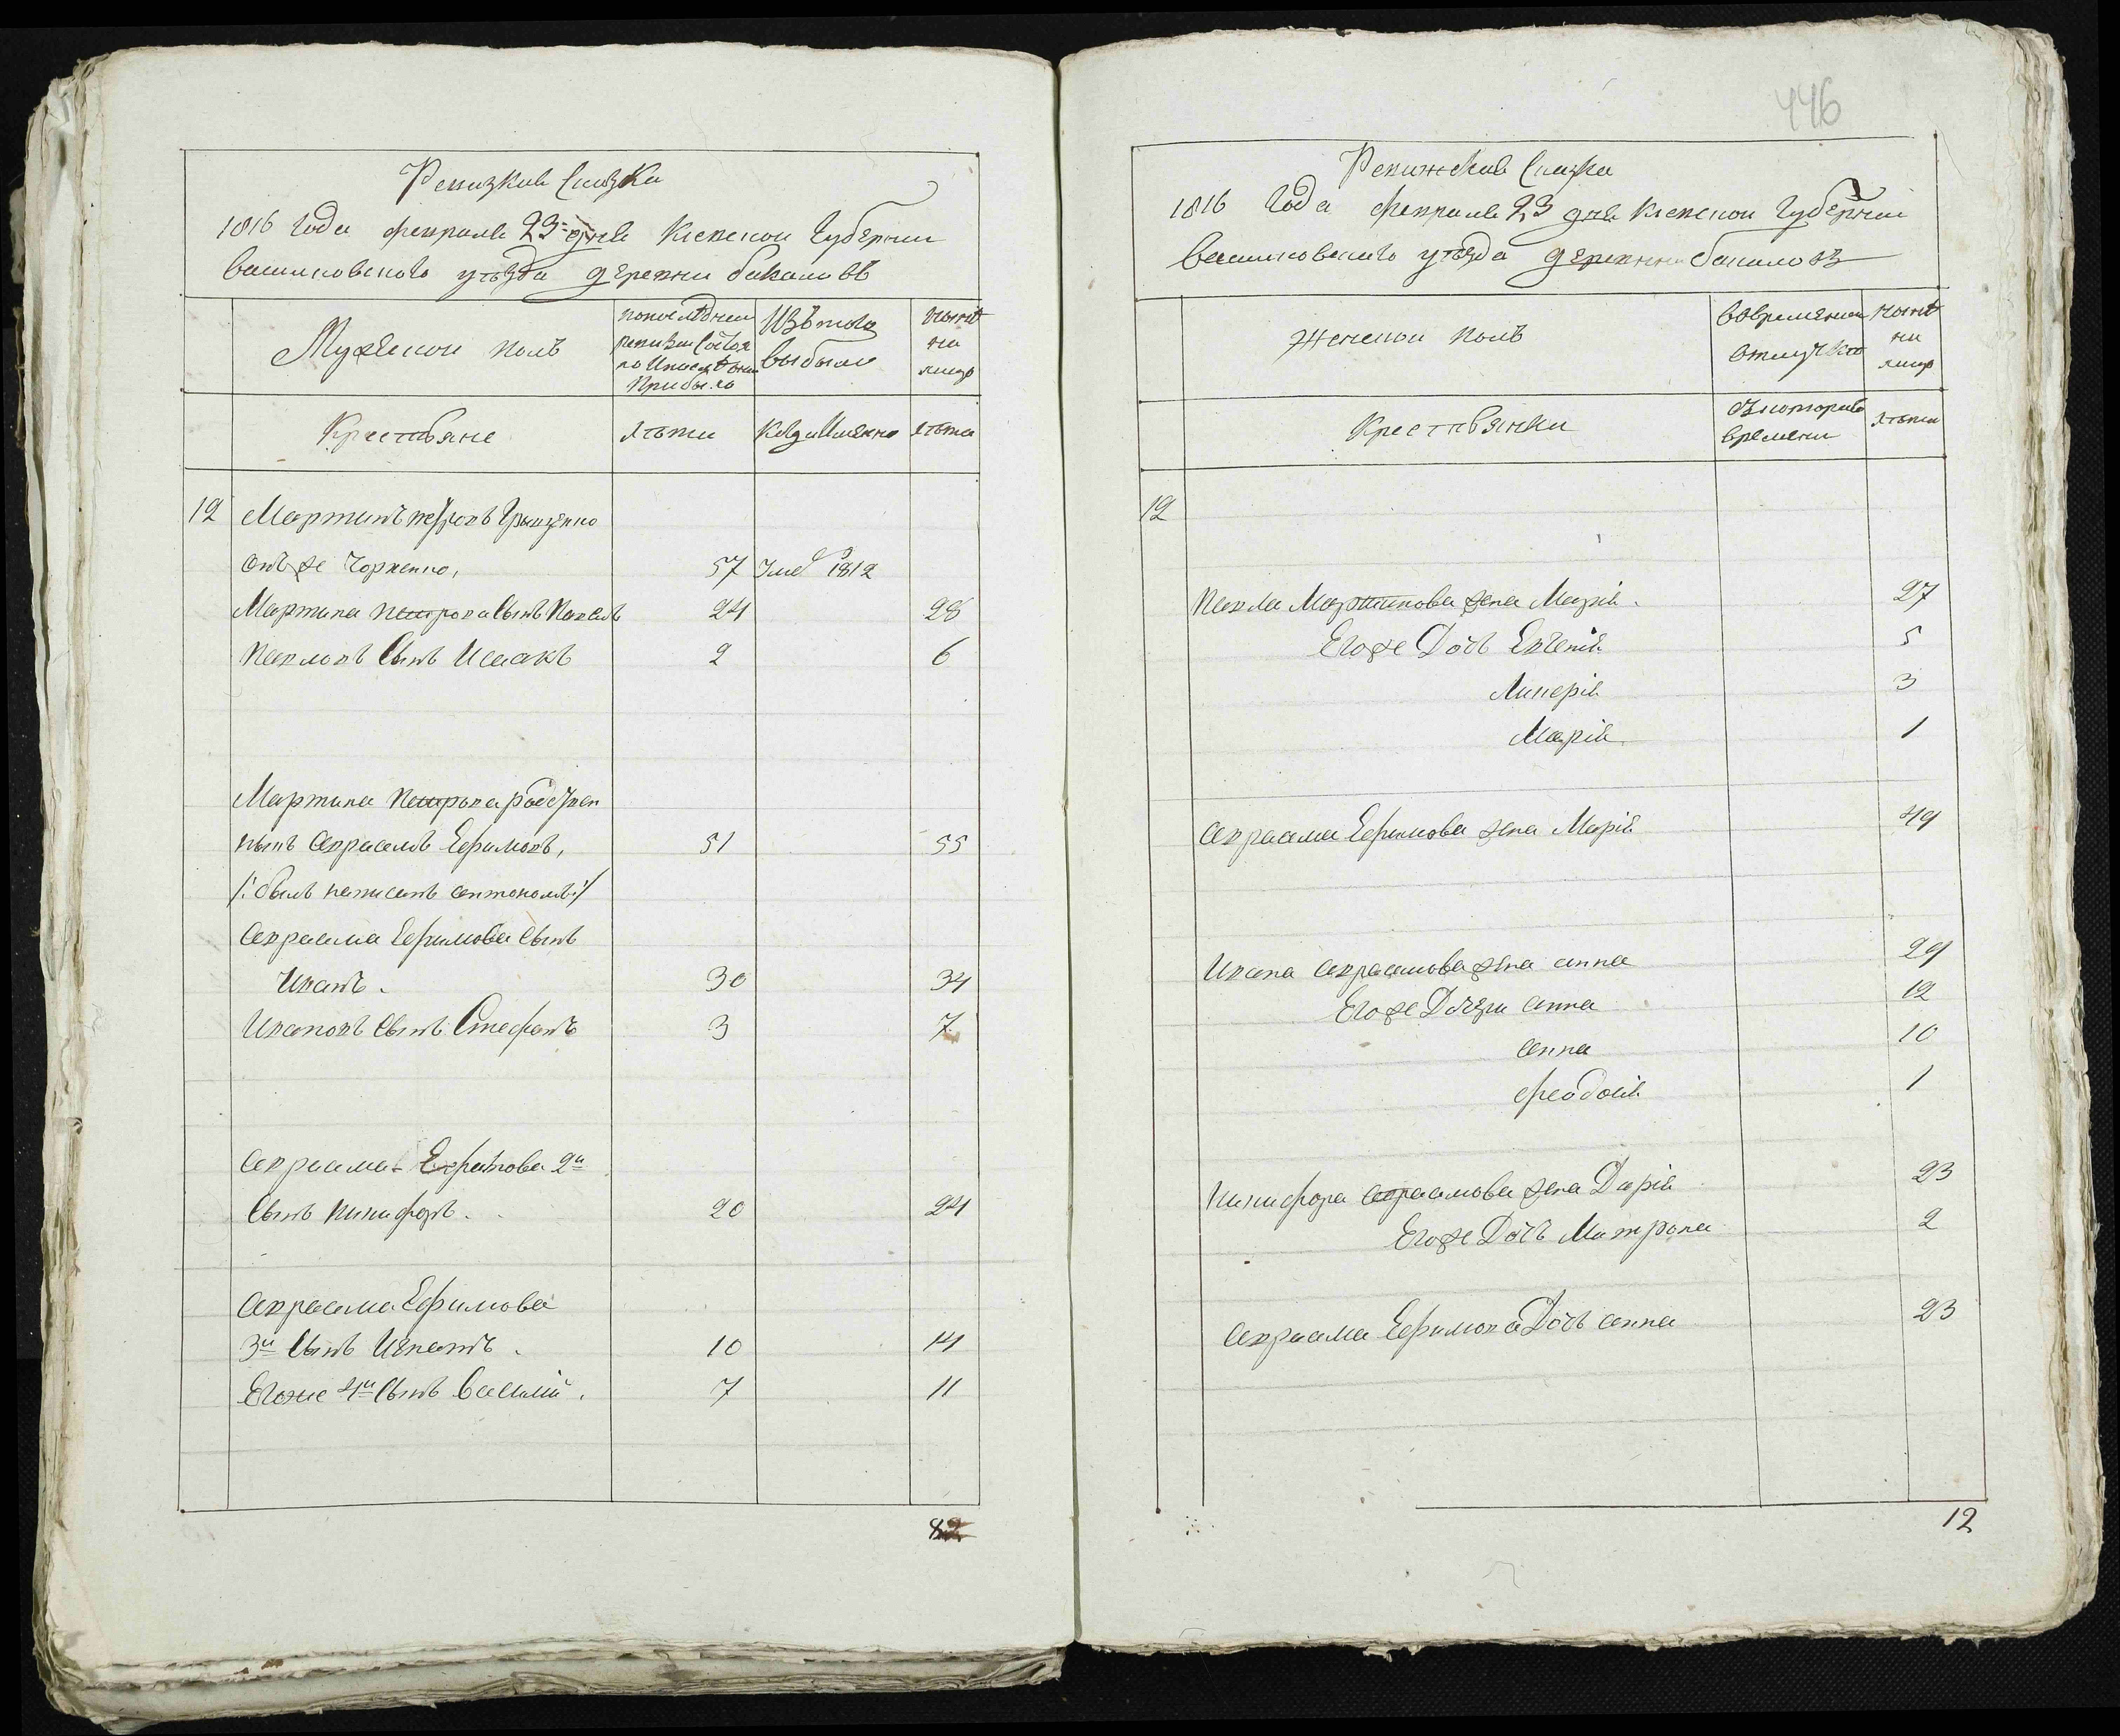 Ревизкая Сказка
1816 Года февраля 23 дня Киевской Губернии
Васильковского уѣзда деревни Бакаловъ
Мужеской полъ
по последней ревизии Состояло И после оной Прибыло
Изъ того выбыло
ныне на лицо
Крестьяне
Лѣты
Когда Имянно
Лѣта
12 Мартинъ Петровъ Грищенко
онъ же Чорненко, 57 Уме 1812
Мартина Петрова Сынъ Павелъ 24 28
Павловъ Сынъ Исаакъ 2 6
Мартина Петрова
Авраамъ Ефимовъ, 51 55
/: былъ написанъ антономъ :/
Авраама Ефимова Сынъ
Иванъ. 30 34
Ивановъ Сынъ Стефанъ 3 7
Авраама Ефимова 2й
Сынъ Никифоръ. 20 24
Авраама Ефимова
3й Сынъ Игнатъ. 10 14
Егоже 4й Сынъ Василий. 7 11
8
446
Ревижская Сказка
1816 Года февраля 23 дня Киевской Губернии
Васильковского уѣзда деревни Бакаловъ
Женской полъ
Во временной отлучке
ныне на лицо
Крестьянки
Съ которого времени
Лѣты
12
Павла Мартинова жена Марія. 27
Егоже Дочь Евгенія 5
Ликерія 3
Марія. 1
Авраама Ефимова жена Марія 49
Ивана Авраамова жена анна 29
Егоже Дочери анна 12
анна 10
феодосія 1
Никифора Авраамова жена Дарія 23
Егоже Дочь Матрона 2
Авраама Ефимова Дочь анна 23
12